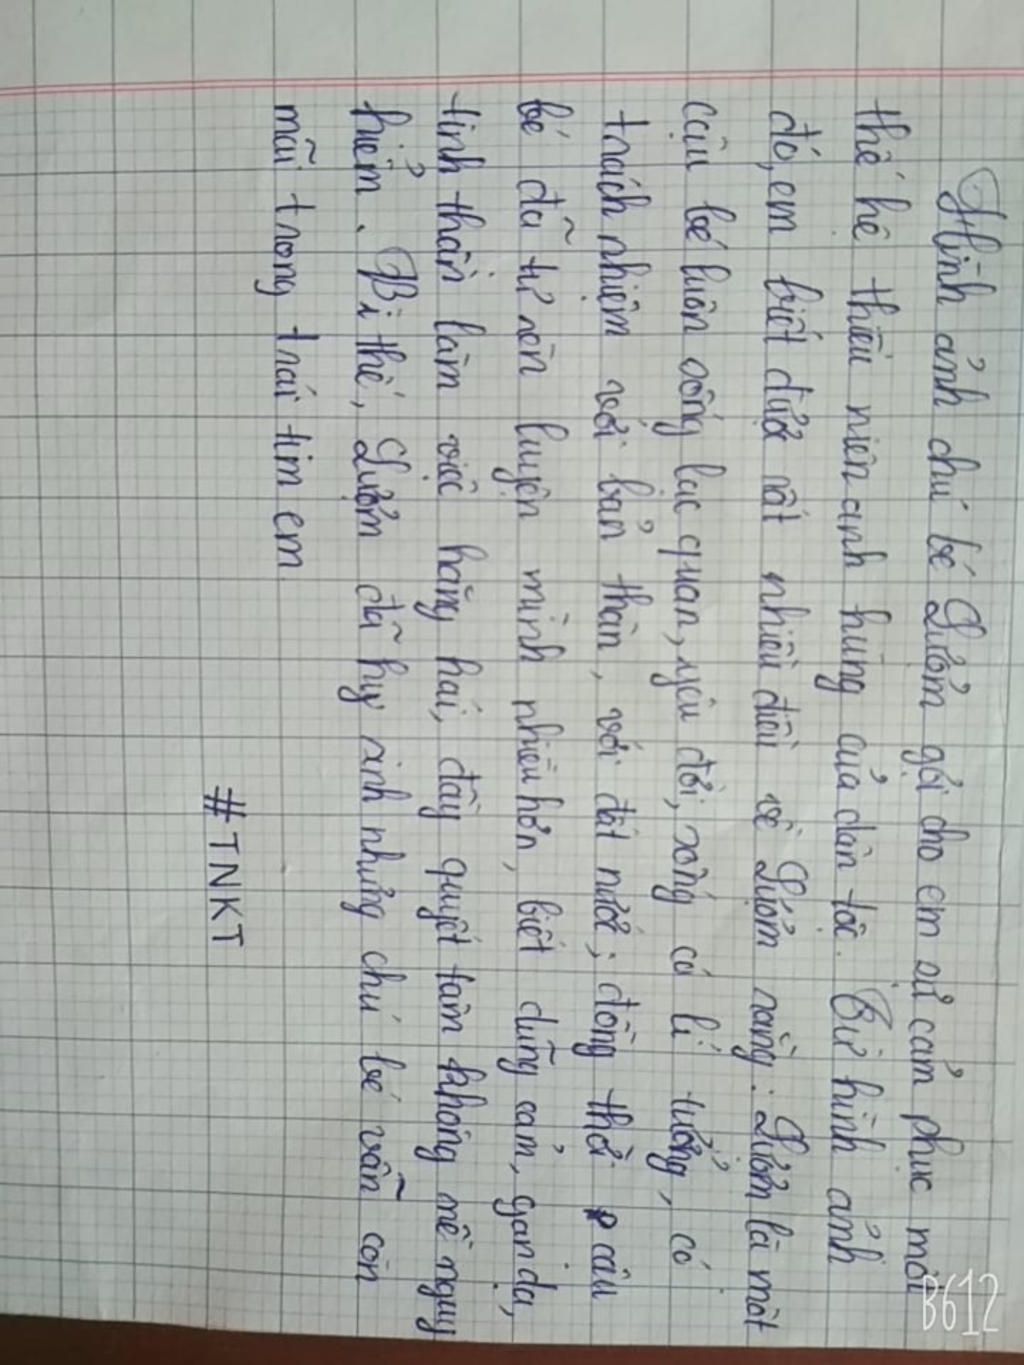 Hình ảnh chú bé Lượm gợi cho em sự cảm phục một
thế hệ thiếu niên anh hùng của dân tộc. Từ hình ảnh
đó, em biết được rất nhiều điều về Lượm rằng: Lượm là một
cậu bé luôn sống lạc quan, yêu đời, sống có lí tưởng, có
trách nhiệm với bản thân, với đất nước; đồng thời cậu
bé đã tự rèn luyện mình nhiều hơn, biết dũng cảm, gan dạ,
tinh thần làm việc hăng hái, đầy quyết tâm không nề nguy
hiểm. Vì thế, Lượm đã hy sinh nhưng chú bé vẫn còn
mãi trong trái tim em.
#TNKT
B612